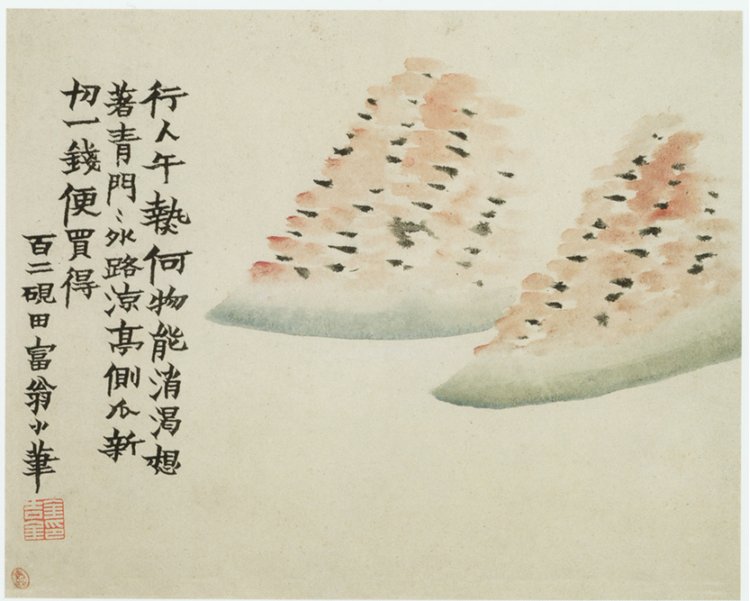 行人午熱何物能消渴想
著青門〻外路涼亭側瓜新
切一錢便買得
百二硯田富翁小筆
金印吉金